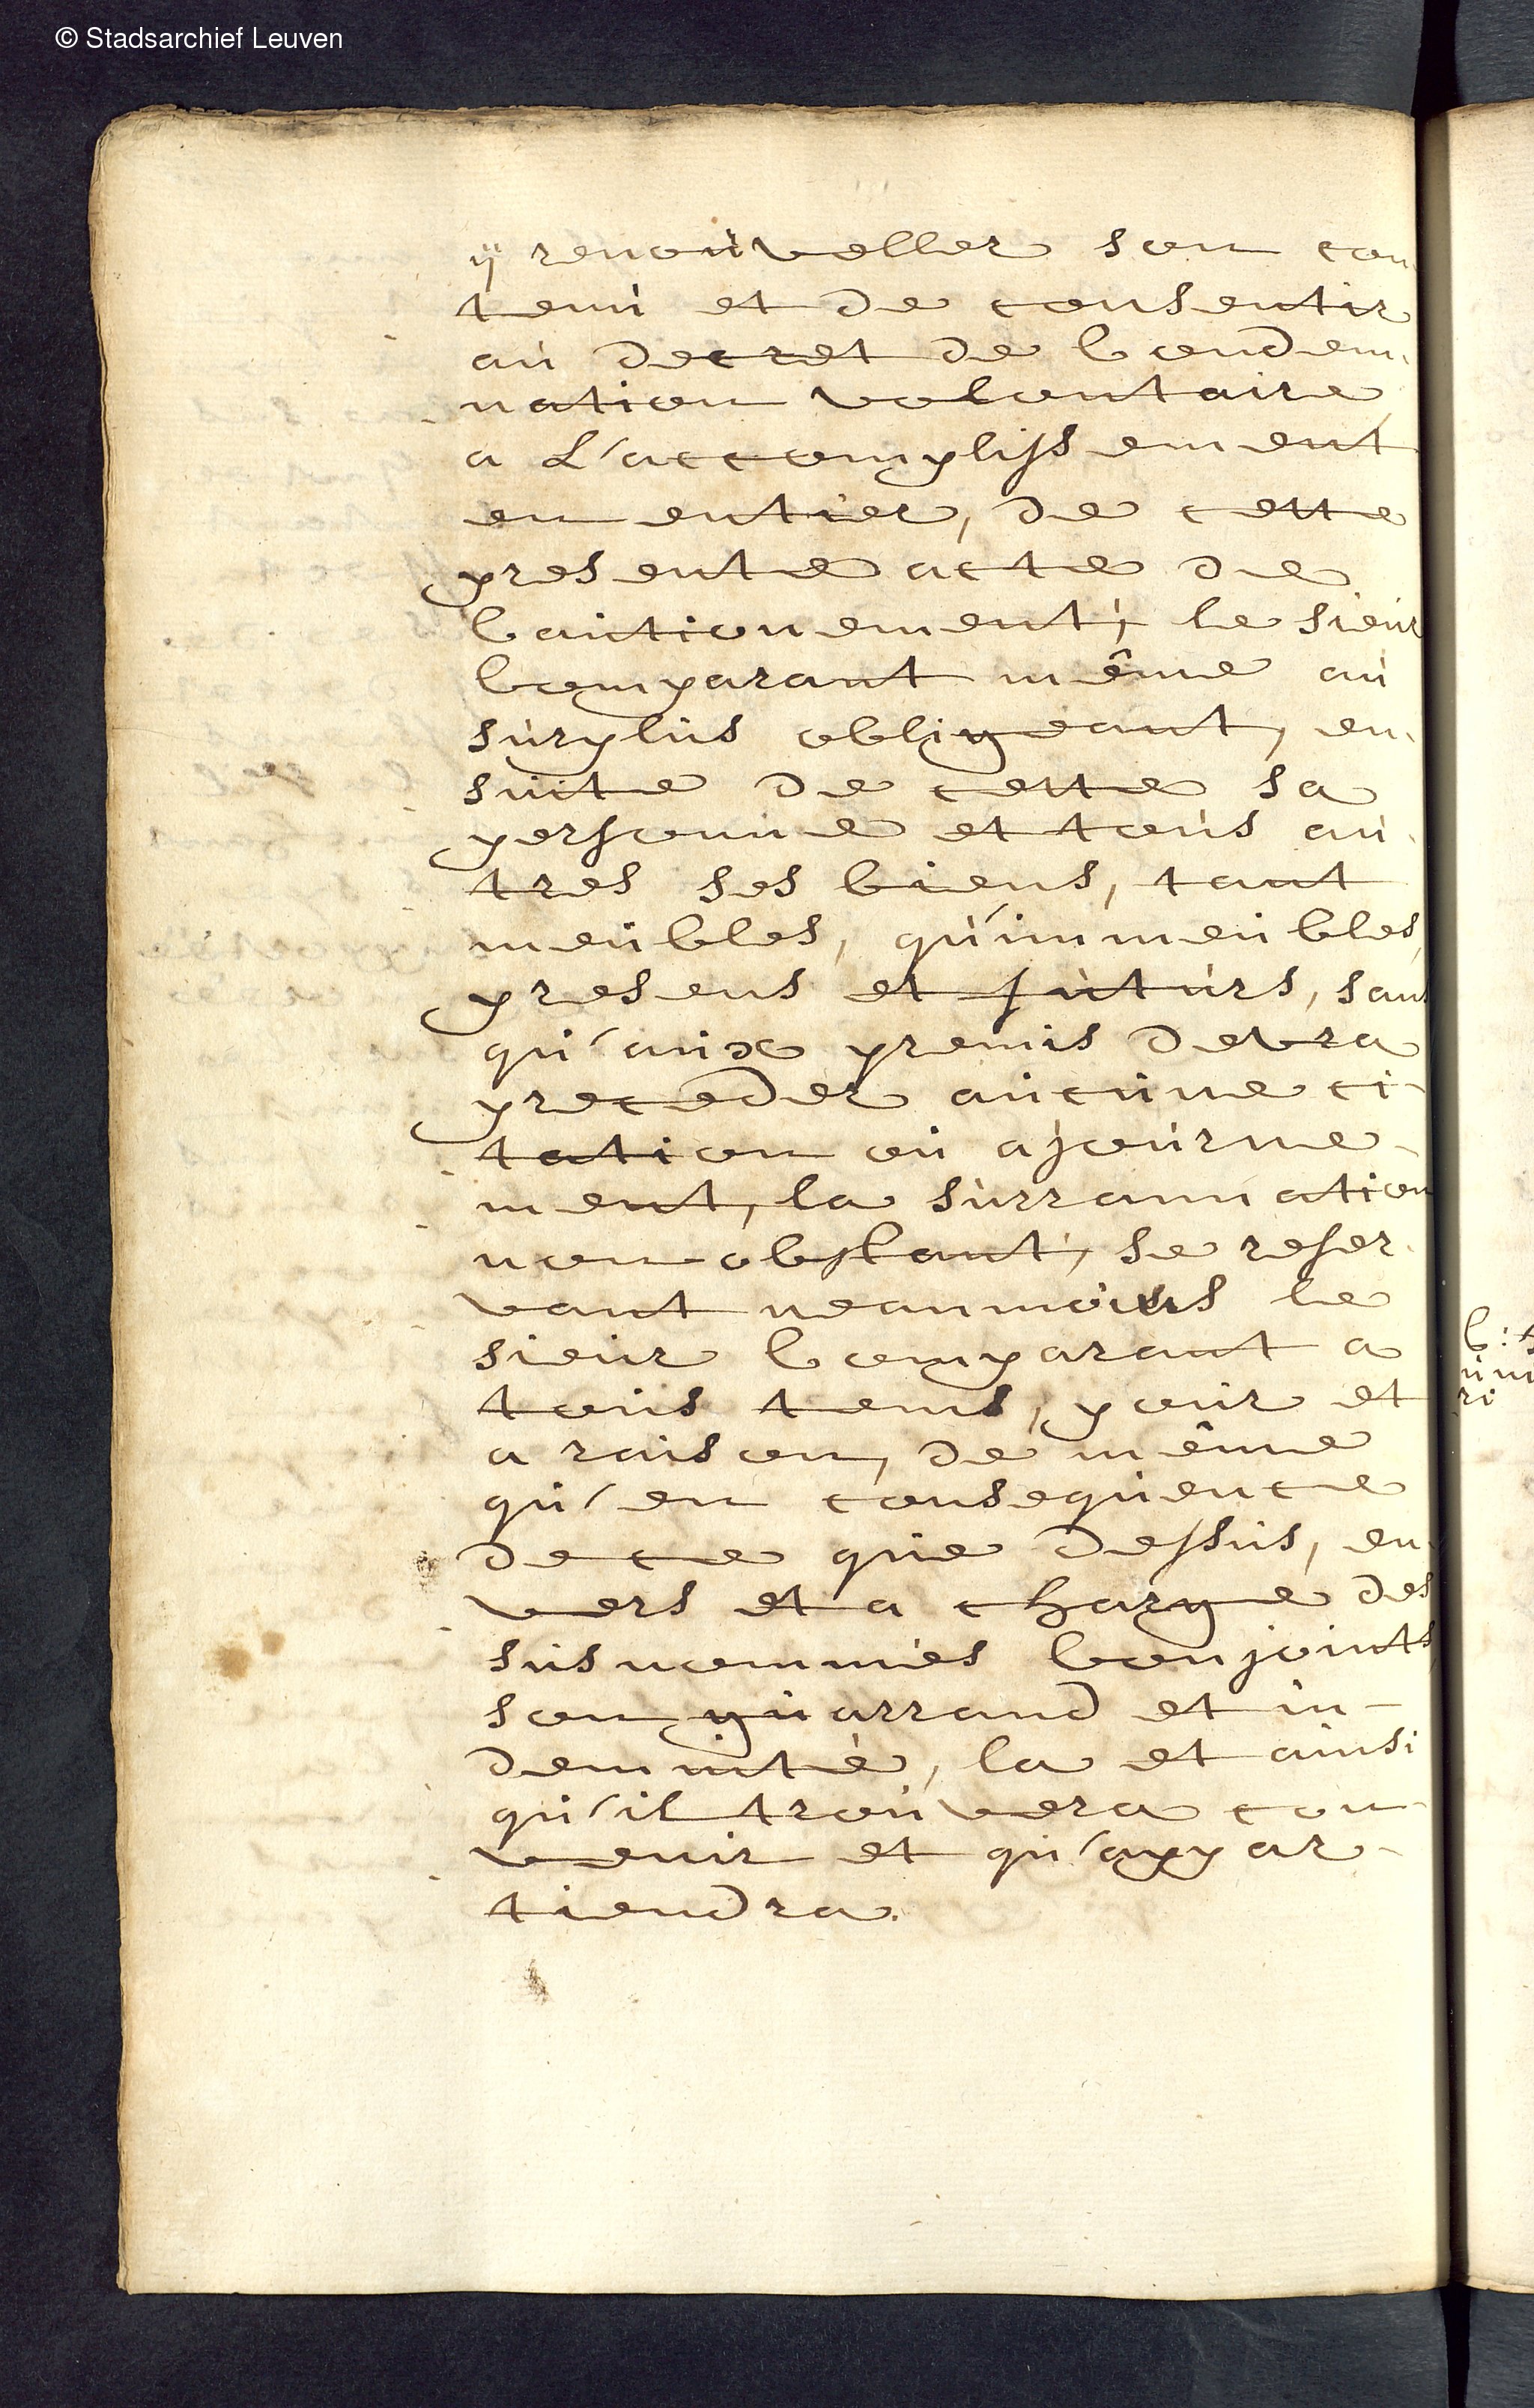 © Stadsarchief Leuven
ÿ renouveller son con-
tenu et de consentir
au decret de Condem-
nation volontaire
a L'accomplissement
en entier, de cette
presente acte de
Cautionement, le sieur
Comparant même au
surplus obligeant, en-
suite de cette sa
personne et tous au-
tres ses biens, tant
meubles, qu'immeubles,
presens et futurs, sans
qu'aux premis devra
preceder aucune ci-
tation ou ajourne-
ment, la surrannation
non obstant, se reser-
vant neanmoins le
sieur Comparant a
tous tems, pour et
a raison, de même
qu'en consequence
de ce que dessus, en-
vers et a charge des
susnommés Conjoints,
son guarrand et in-
demnité, la et ainsi
qu'il trouvera con-
venir et qu'appar-
tiendra.